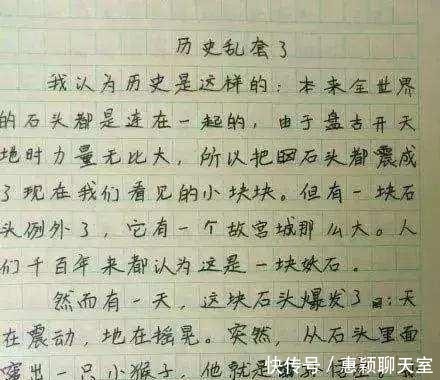 历史乱套了
我认为历史是这样的：本来全世界
的石头都是连在一起的，由于盘古开天
地时力量无比大，所以把石头都震成
了现在我们看见的小块块。但有一块石
头例外了，它有一个故宫城那么大。人
们千百年来都认为这是一块妖石。
然而有一天，这块石头爆发了：天
在震动，地在摇晃。突然，从石头里面
窜出一只小猴子，他就是
快传号/惠颖聊天室